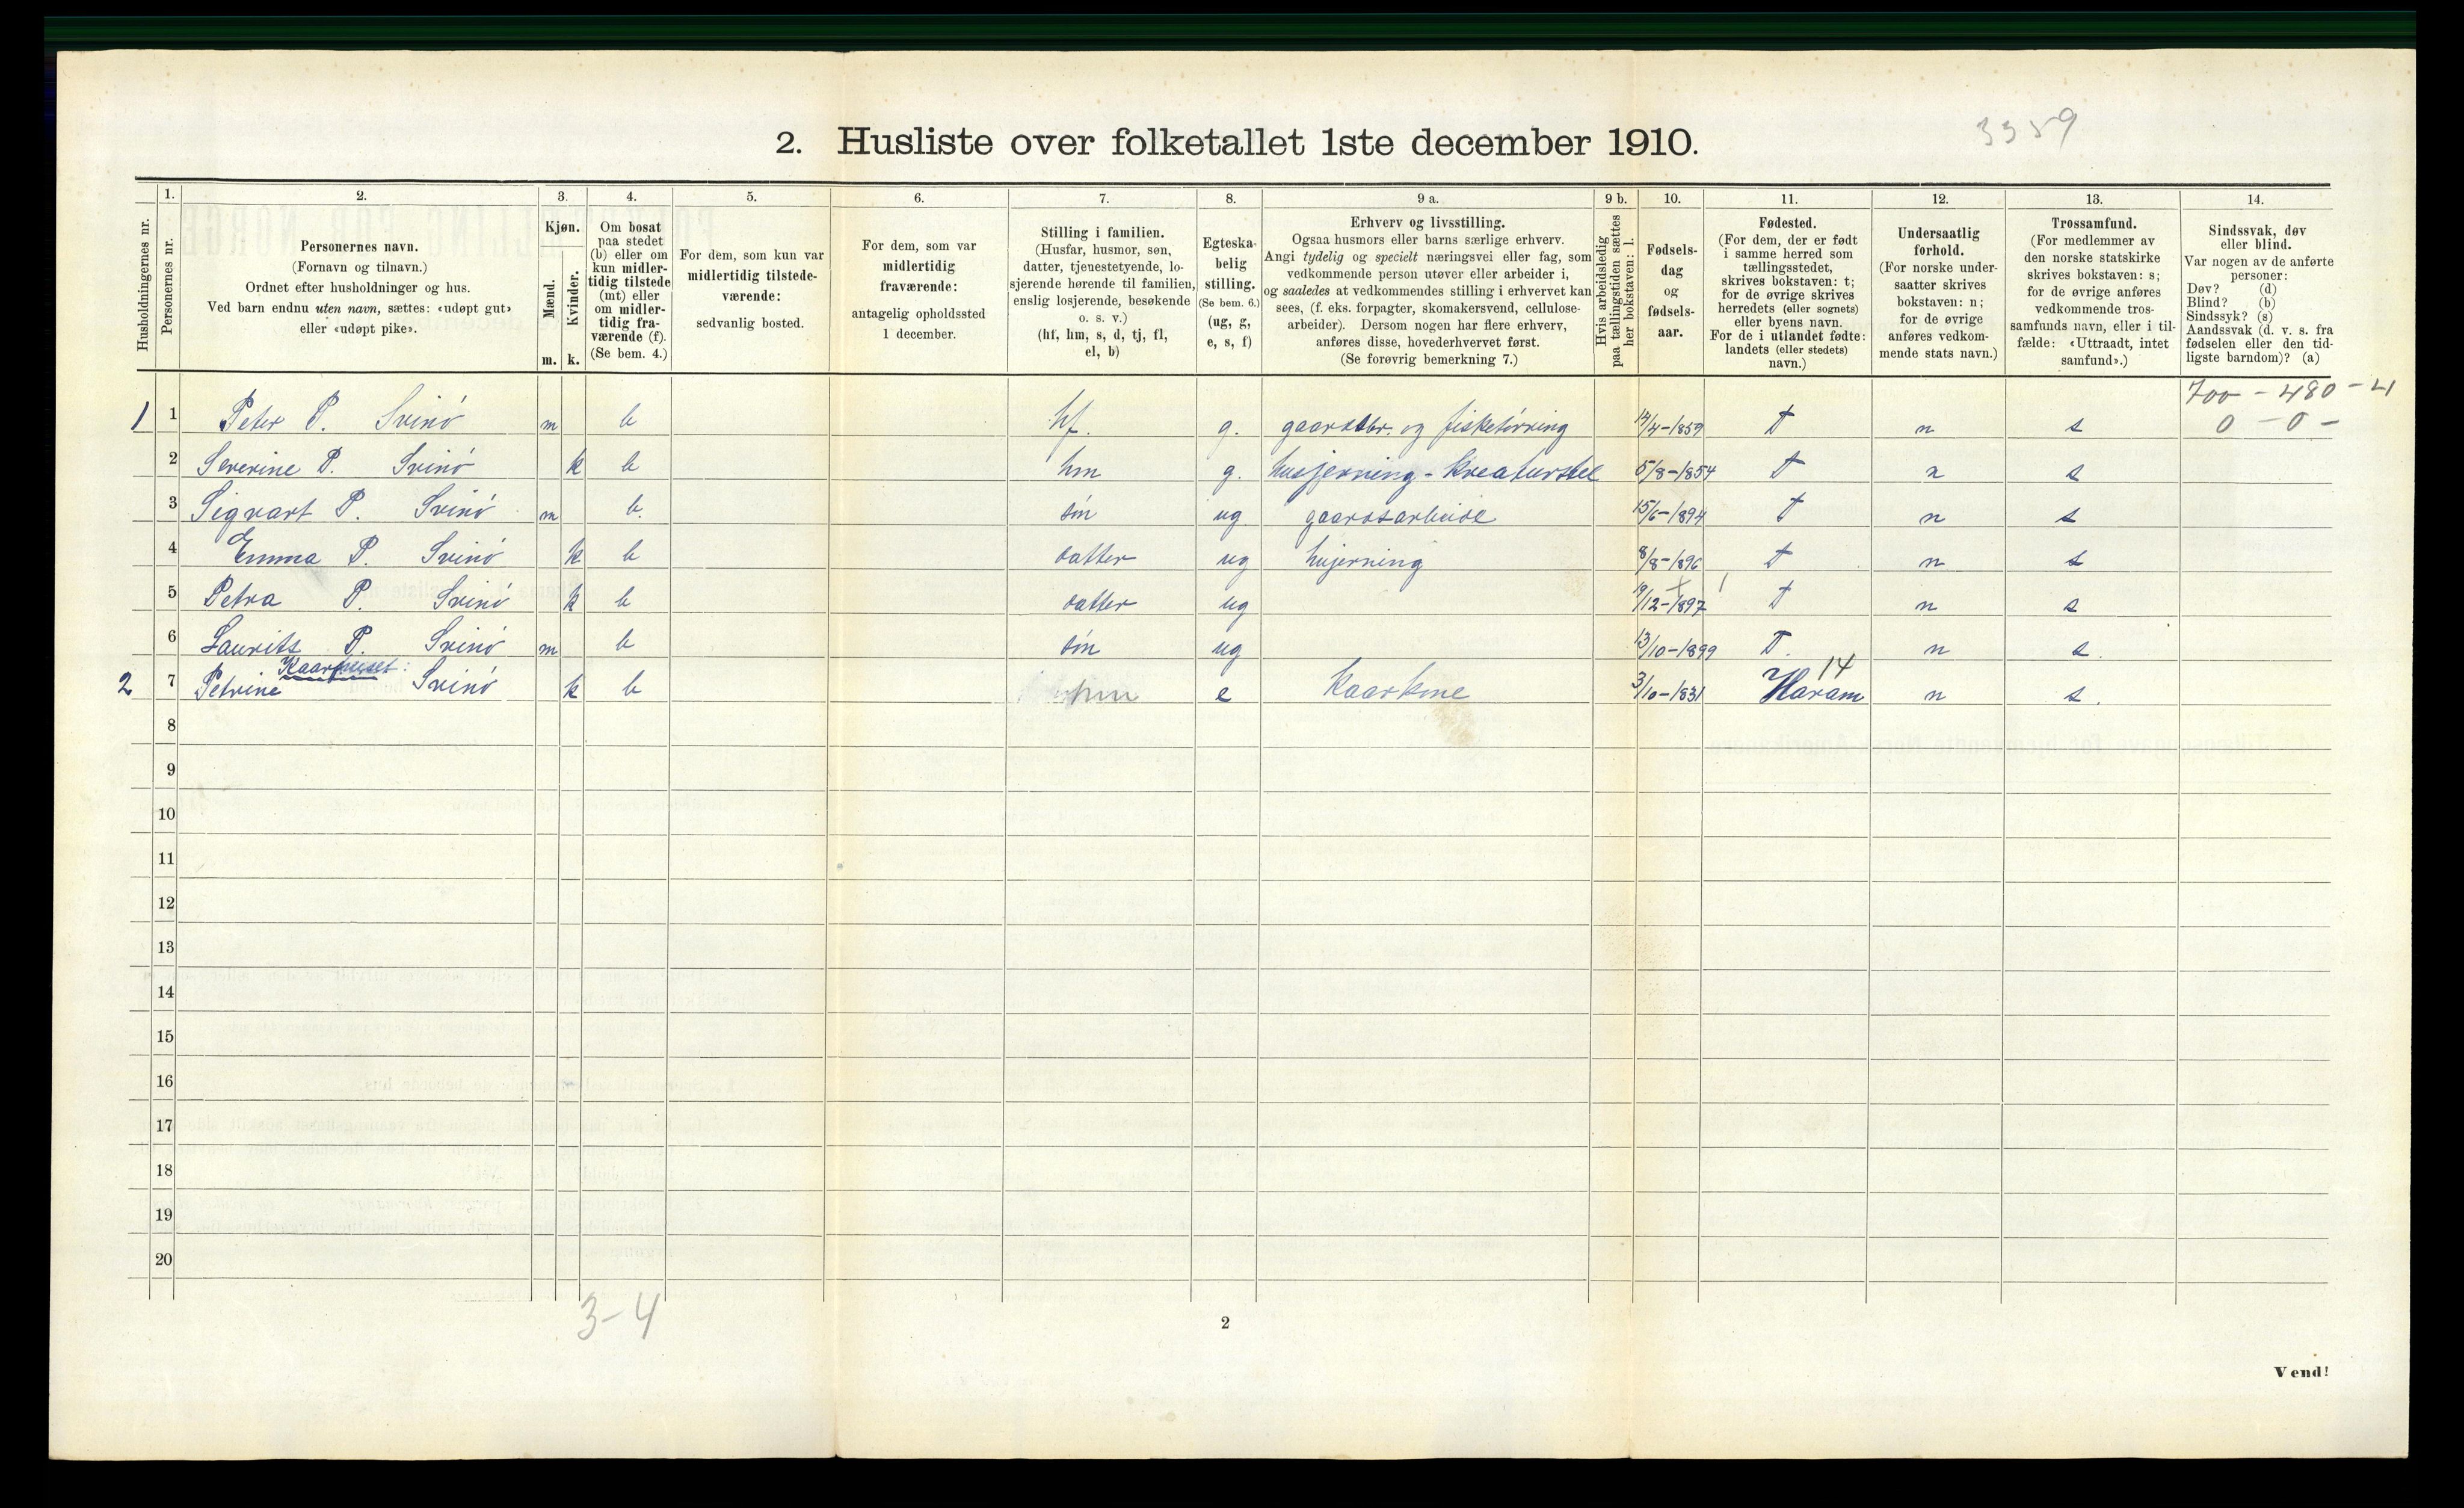 3359
2. Husliste over folketallet 1ste december 1910.
Husholdningernes nr.
1. Personernes nr.
2. Personernes navn. (Fornavn og tilnavn.) Ordnet efter husholdninger og hus. Ved barn endnu uten navn, sættes: «udøpt gut» eller «udøpt pike».
3. Kjøn. Mænd. m. Kvinder. k.
4. Om bosat paa stedet (b) eller om kun midlertidig tilstede (mt) eller om midlertidig fraværende (f). (Se bem. 4.)
5. For dem, som kun var midlertidig tilstedeværende: sedvanlig bosted.
6. For dem, som var midlertidig fraværende: antagelig opholdssted 1 december.
7. Stilling i familien. (Husfar, husmor, søn, datter, tjenestetyende, losjerende hørende til familien, enslig losjerende, besøkende o. s. v.) (hf, hm, s, d, tj, fl, el, b)
8. Egteskabelig stilling. (Se bem. 6.) (ug, g, e, s, f)
9 a. Erhverv og livsstilling. Ogsaa husmors eller barns særlige erhverv. Angi tydelig og specielt næringsvei eller fag, som vedkommende person utøver eller arbeider i, og saaledes at vedkommendes stilling i erhvervet kan sees, (f. eks. forpagter, skomakersvend, cellulosearbeider). Dersom nogen har flere erhverv, anføres disse, hovederhvervet først. (Se forøvrig bemerkning 7.)
9 b. Hvis arbeidsledig paa tællingstiden sættes her bokstaven: l.
10. Fødselsdag og fødselsaar.
11. Fødested. (For dem, der er født i samme herred som tællingsstedet, skrives bokstaven: t; for de øvrige skrives herredets (eller sognets) eller byens navn. For de i utlandet fødte: landets (eller stedets) navn.)
12. Undersaatlig forhold. (For norske undersaatter skrives bokstaven: n; for de øvrige anføres vedkommende stats navn.)
13. Trossamfund. (For medlemmer av den norske statskirke skrives bokstaven: s; for de øvrige anføres vedkommende trossamfunds navn, eller i tilfælde: «Uttraadt, intet samfund».)
14. Sindssvak, døv eller blind. Var nogen av de anførte personer: Døv? (d) Blind? (b) Sindssyk? (s) Aandssvak (d. v. s. fra fødselen eller den tidligste barndom)? (a)
700 - 480 - 21
0 - 0 -
1 1 Peter P. Svinö m b hf. g. gaardbr. og fisketörring 14/4-1859 T n s
2 Severine P. Svinö k b hm g. husjerning - Kreaturstel 5/8-1854 T n s
3 Sigvart P. Svinö m b. sön ug gaardsarbeide 15/6-1894 T n s
4 Emma P. Svinö k b datter ug hujerning 8/8-1896 T n s
5 Petra P. Svinö k b datter ug 19/12-1897 T n s
6 Laurits P. Svinö m b sön ug 13/10-1899 T. n s.
Kaarhuset:
2 7 Petrine Svinö k b hm e Kaarkone 3/10-1831 Haram 14 n s.
8
9
10
11
12
13
14
15
16
17
18
19
20
3-4
2
Vend!